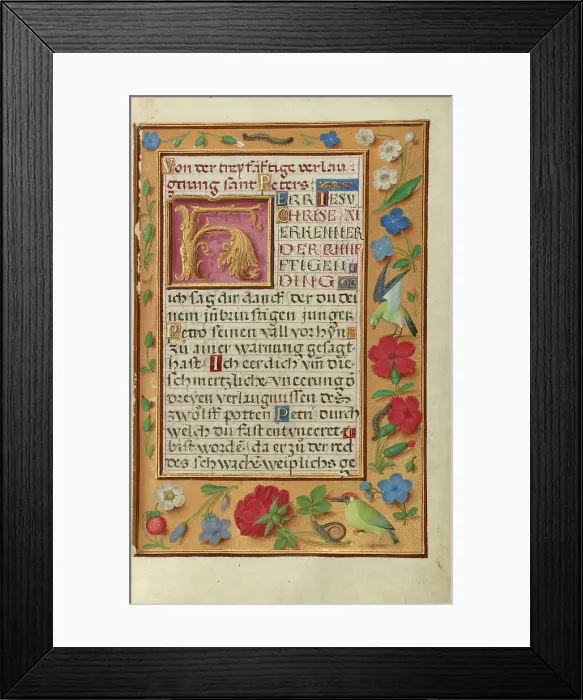 Von der treyfäftige verlau:
gnung sant Peters:
H
ERR IESV
CHRISE AI
ERKENNER
DER KVNF
FTIGEN
DING
ich sag dir danck der du dei
nem in brinstigen junger
Petro seinen vall vor hyn
zu ainer warnung gesagt
hast. Ich eer dich vnn die
schmertzliche vneerung d
dreyen verlaugnussen des
zwolff potten Petri durch
welch du fast entvneeret
bist worden da er zu der red
des schwachen weiplichs ge